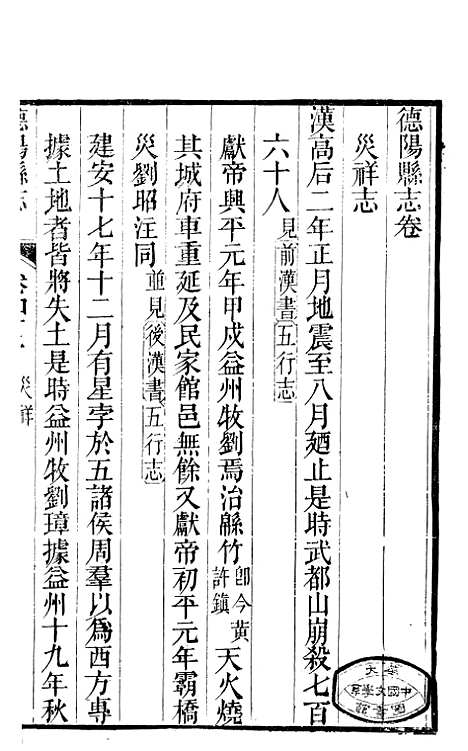 德陽縣志卷
災祥志
漢高后二年正月地震至八月廼止是時武都山崩殺七百
六十人見前漢書五行志
獻帝興平元年甲戍益州牧劉焉治緜竹卽今黃許鎮天火燒
其城府車重延及民家館邑無餘又獻帝初平元年霸橋
災劉昭注同並見後漢書五行志
建安十七年十二月有星孛於五諸侯周羣以為西方專
據土地者皆將失土是時益州牧劉璋據益州十九年秋
德陽縣志
災祥